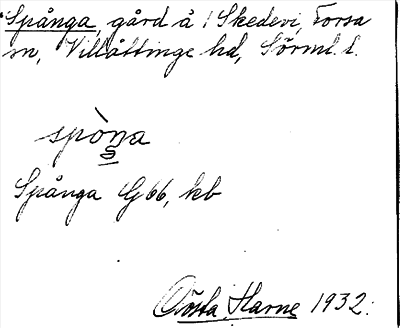 Spånga, gård å /Skedevi, Torsa
sn, Villåttinge hd, Sörml. l.
spòŋa
Spånga G 66, kb
Gösta Harne 1932.